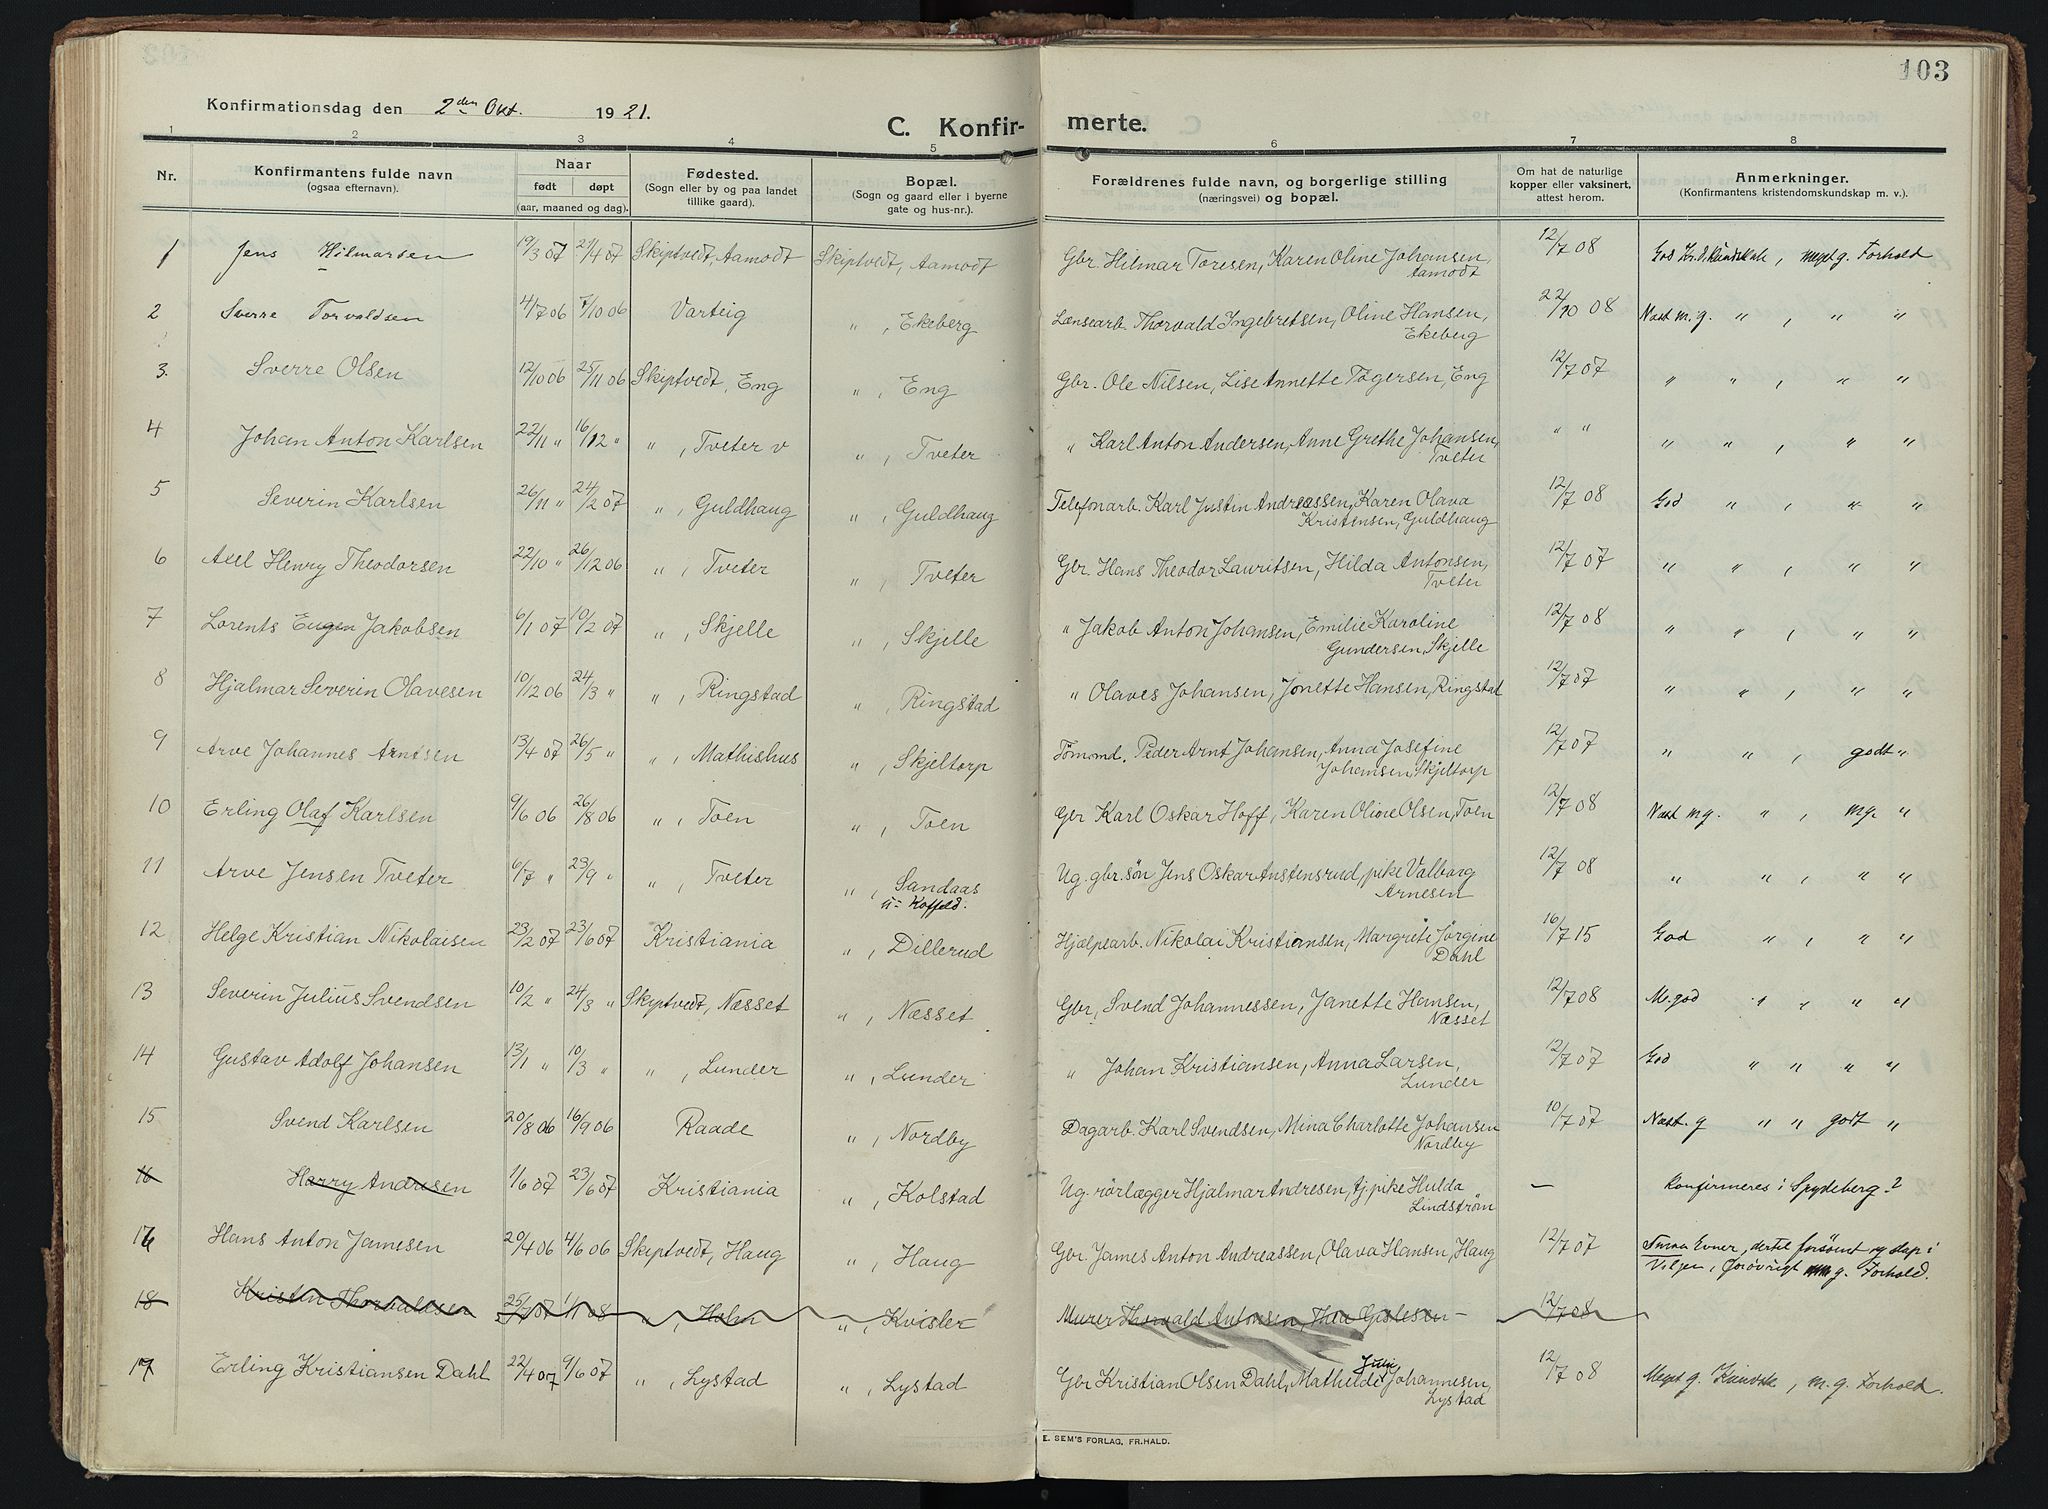 103
Konfirmationsdag den 2den Okt. 1921.
C. Konfirmerte.
1 2 3 4 5 6 7 8
Nr. Konfirmantens fulde navn (ogsaa efternavn). Naar født døpt (aar, maaned og dag). Fødested. (Sogn eller by og paa landet tillike gaard). Bopæl. (Sogn og gaard eller i byerne gate og hus-nr.). Forældrenes fulde navn, og borgerlige stilling (næringsvei) og bopæl. Om hat de naturlige kopper eller vaksinert, attest herom. Anmerkninger. (Konfirmantens kristendomskundskap m. v.).
1 Jens Hilmarsen 19/3 07 21/4 07 Skiptvedt, Aamodt Skiptvedt, Aamodt Gbr. Hilmar Toresen, Karen Oline Johansen, Aamodt 12/7 08 God Kr.d.kundskab, meget g. Forhold
2 Sverre Torvaldsen 4/7 06 7/10 06 Varteig " , Ekeberg Lænsearb. Thorvald Ingebretsen, Oline Hansen, Ekeberg 22/10 08 Næst m. g. " , " "
3. Sverre Olsen 12/10 06 25/11 06 Skiptvedt, Eng " , Eng Gbr. Ole Nilsen, Lise Annette Tøgersen, Eng 12/7 07 " " , " "
4 Johan Anton Karlsen 22/11 " 16/12 " " , Tveter v " , Tveter " Karl Anton Andersen, Anne Grethe Johansen, Tveter " " " " , " "
5 Severin Karlsen 26/11 " 24/2 07 " , Guldhaug " , Guldhaug Telefonarb. Karl Justin Andreassen, Karen Olava Kristensen, Guldhaug 12/7 08 God " , " "
6 Axel Henry Theodorsen 22/10 " 26/12 06 " , Tveter " , Tveter Gbr. Hans Theodor Lauritsen, Hilda Antonsen, Tveter 12/7 07 " " , " "
7 Lorents Eugen Jakobsen 6/1 07 10/2 07 " , Skjelle " , Skjelle " Jakob Anton Johansen, Emilie Karoline Gundersen, Skjelle 12/7 08 " " , " "
8 Hjalmar Severin Olavesen 10/12 06 24/3 " " , Ringstad " , Ringstad " Olaves Johansen, Jonette Hansen, Ringstad 12/7 07 " " , " "
9 Arve Johannes Arntsen 13/4 07 26/5 " " , Mathishus " , Skjeltorp Tømmd. Peder Arnt Johansen, Anna Josefine Johansen, Skjeltorp 12/7 07 " " , godt "
10 Erling Olaf Karlsen 9/6 06 26/8 06 " , Toen " , Toen Gbr Karl Oskar Hoff, Karen Oline Olsen, Toen 12/7 08 Næst mg. " , mg. "
11 Arve Jensen Tveter 6/7 " 23/9 " " , Tveter " , Sandaas u= Koffeld. Ug. gbr.søn Jens Oskar Austensrud, pike Valborg Arnesen 12/7 08 " " , " "
12 Helge Kristian Nikolaisen 23/2 07 23/6 07 Kristiania " , Dillerud Hjælpearb. Nikolai Kristiansen, Margrete Jørgine Dahl 16/7 15 God " , " "
13 Severin Julius Svendsen 10/2 " 24/3 " Skiptvedt, Næsset " , Næsset Gbr, Svend Johannessen, Janette Hansen, Næsset 12/7 08 M. god " , " "
14 Gustav Adolf Johansen 13/1 " 10/3 " " , Lunder " , Lunder " Johan Kristiansen, Anna Larsen, Lunder 12/7 07 God " " " "
15 Svend Karlsen 20/8 06 16/9 06 Raade " , Nordby Dagarb. Karl Svendsen, Mina Charlotte Johansen Nordby 10/7 07 Næst. g " " godt "
16 Harry Andresen 1/6 07 23/6 07 Kristiania " , Kolstad Ug. rørlægger Hjalmar Andresen, tj. pike Hulda Lindstrøm — Konfirmeres i Spydeberg?
16 Hans Anton Jamesen 20/4 06 4/6 06 Skiptvedt, Haug " , Haug Gbr. James Anton Andreassen, Olava Hansen, Haug 12/7 07 Smaa Evner, dertil forsømt og slap i Viljen, forøvrigt m. g. Forhold.
18 Kristen Thorvaldsen 25/7 07 1/1 08 " , Holm " , Kvisler Murer Thorvald Antonsen, Thea Gislesen – 12/7 08
17 Erling Kristiansen Dahl 22/4 07 9/6 07 " , Lystad " , Lystad Gbr Kristian Olsen Dahl, Mathilde Julie Johannesen, Lystad 12/7 08 Meget g. Kundsk, m. g. Forhold.
E. SEM'S FORLAG, FR.HALD.